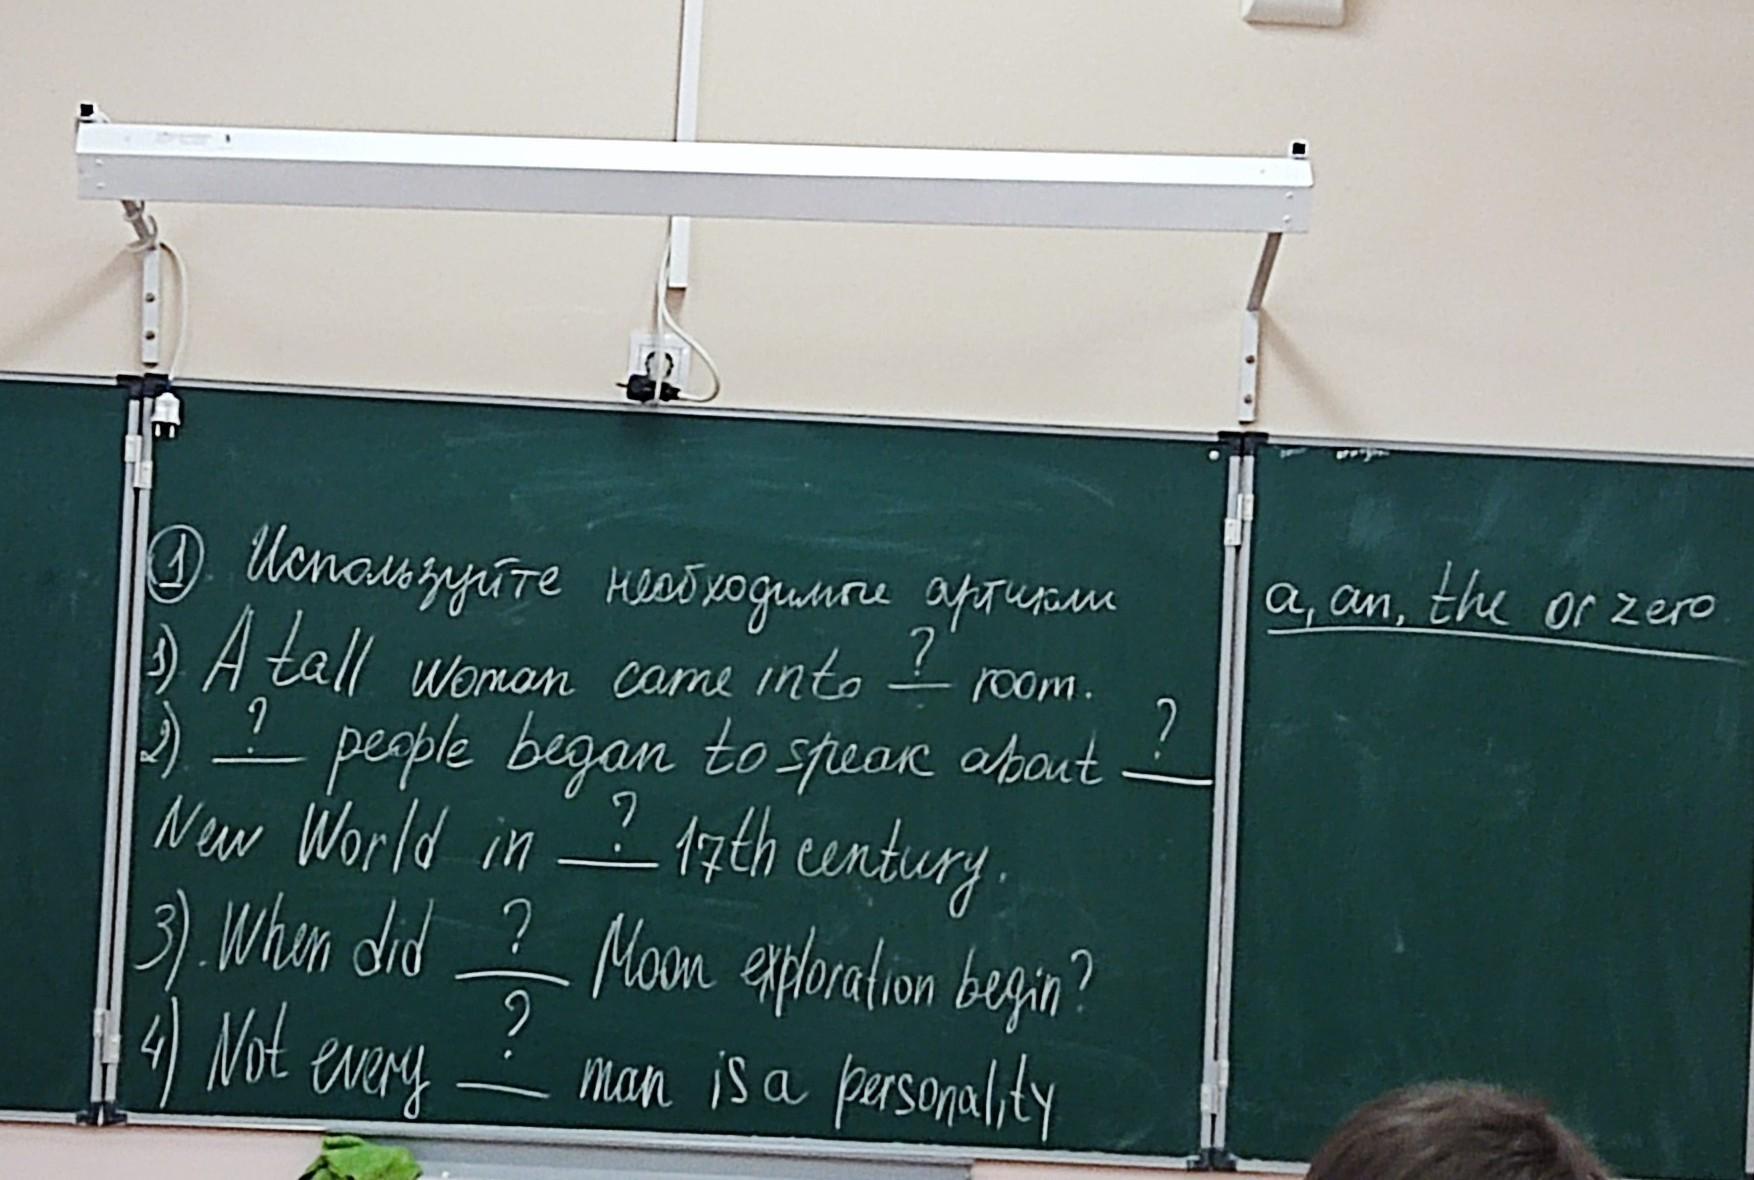 1 Используйте необходимые артикли a, an, the or zero
1) A tall woman came into ? room.
2) ? people began to speak about ?
New World in ? 17th century.
3). When did ? Moon exploration begin?
4) Not every ? man is a personality